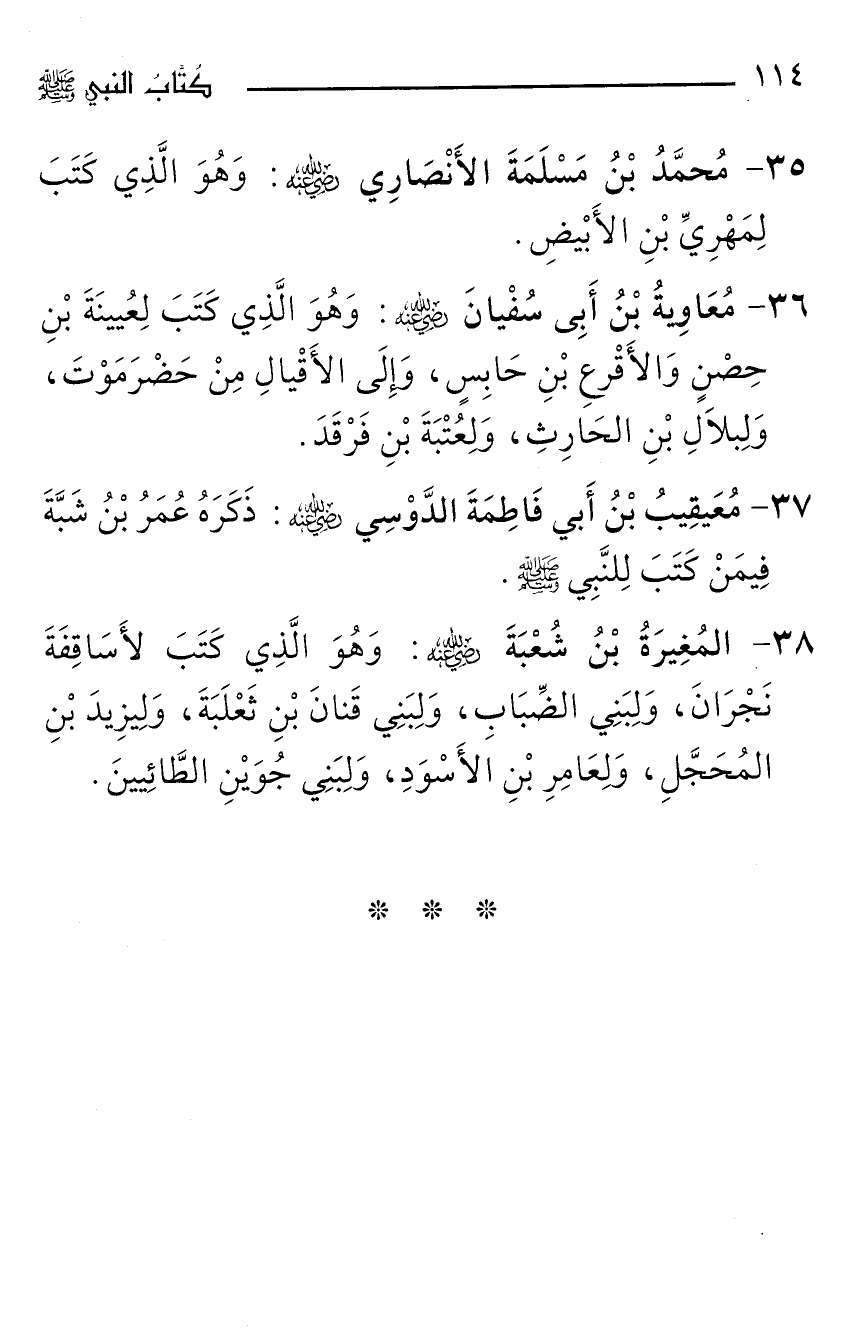 ١١٤ كُتَّابُ النبي ﷺ
٣٥- مُحمَّدُ بْنُ مَسْلَمَةَ الأَنْصَارِي رضي الله عنه : وَهُوَ الَّذِي كَتَبَ
لِمَهْرِيِّ بْنِ الأَبْيضِ .
٣٦- مُعَاوِيةُ بْنُ أَبِى سُفْيانَ رضي الله عنه : وَهُوَ الَّذِي كَتَبَ لِعُيينَةَ بْنِ
حِصْنٍ وَالأَقْرعِ بْنِ حَابِسٍ، وَإِلَى الأَقْيالِ مِنْ حَضْرَمَوْتَ،
وَلِبلاَلِ بْنِ الحَارِثِ، وَلِعُتْبَةَ بْنِ فَرْقَدَ.
٣٧- مُعَيقِيبُ بْنُ أَبي فَاطِمَةَ الدَّوْسِي رضي الله عنه : ذَكَرَهُ عُمَرُ بْنُ شَبَّةَ
فِيمَنْ كَتَبَ لِلنَّبِي ﷺ .
٣٨- المُغِيرَةُ بْنُ شُعْبَةَ رضي الله عنه : وَهُوَ الَّذِي كَتَبَ لأَسَاقِفَةَ
نَجْرَانَ، وَلِبَنِي الضِّبَابِ، وَلِبَنِي قَنانَ بْنِ ثَعْلَبَةَ، وَلِيزِيدَ بْنِ
المُحَجَّلِ، وَلِعَامِرِ بْنِ الأَسْوَدِ، وَلِبَنِي جُوَيْنِ الطَّائِيينَ.
* * *